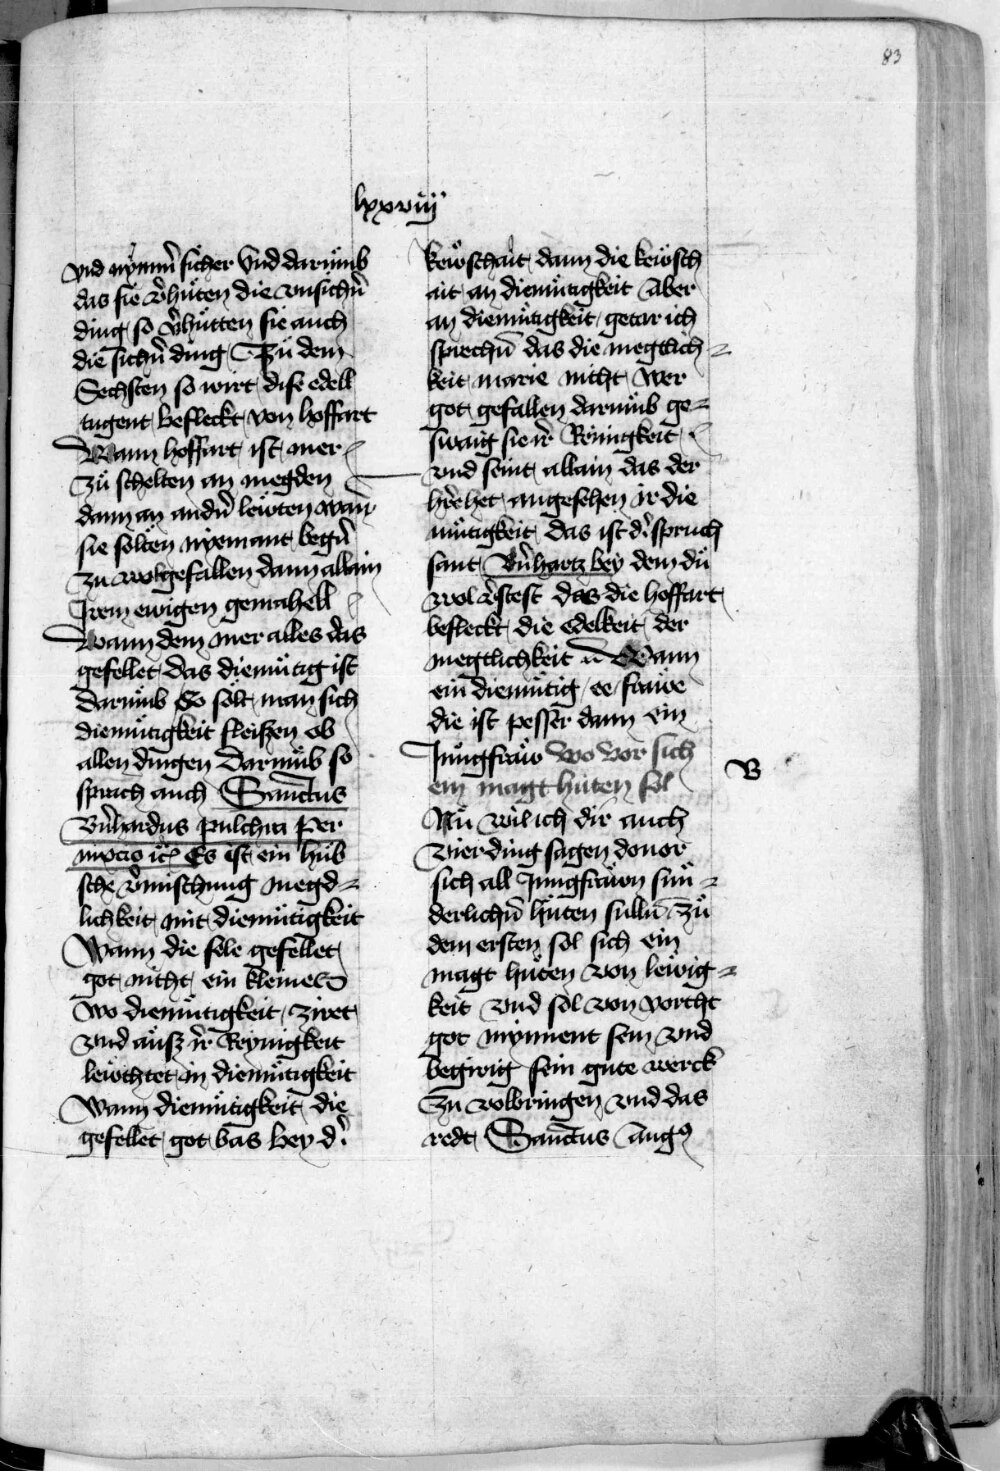 83
lxxviij
vnd nymm̃ sicher Vnd darümb
das sie v̾hüten die vnsich̾n
ding so v̾hütten sie auch
die sich̾n ding Zü dem
Sechsten so wirt dise edell
tugent befleckt von hoffart
Wann hoffart ist mer
zü schelten an megden
dann an and̾n lewten wañ
sie sölten nyemant beg̾n
zu wolgefallen dann allain
Irem ewigen gemahell
Wann dem mer alles das
gefellet das diemütig ist
Darümb So sölt man sich
diemütigkeit fleißen ob
allen dingen Darümb so
sprach auch Sanctus
B̾nhardus pulchra per
mixtio ꝛc Es ist ein hüb
sche v̾mischung megd-
lichkeit mit diemütigkeit
Wann die sele gefellet
got nicht ein kleines
wo diemütigkeit ziret
vnd auſz ir̾ Reynigkeit
lewchtet in diemütigkeit
Wann diemütigkeit die
gefellet got bas bey d̾
kewschait dann die kewsch
ait an diemütigkeit Aber
an diemütigkeit getar ich
sprech̄n das die megtlich-
keit marie nicht wer
got gefallen darümb ge-
swaig sie ir̾ Reinigkeit
vnd seint allain das der
h̾re het angesehen ir die
mütigkeit das ist d̾ spruch
sant B̾nhartz bey dem dü
wol v̾stest das die hoffart
befleckt die edelkeit der
megtlichkeit Wann
ein diemütig ee frawe
die ist pesser dann ein
Jungfraw Wo vor sich
ein magt hüten sol
B
Nü wil ich dir auch
vier ding sagen douor
sich all Jungfrawn sün-
derlich̄n hüten sülln̄ Zü
dem ersten sol sich ein
magt hüten von lewig-
keit vnd sol von vorcht
got mynnent sein vnd
begirig sein gute werck
zu volbringen vnd das
redt Sanctus Augꝰ